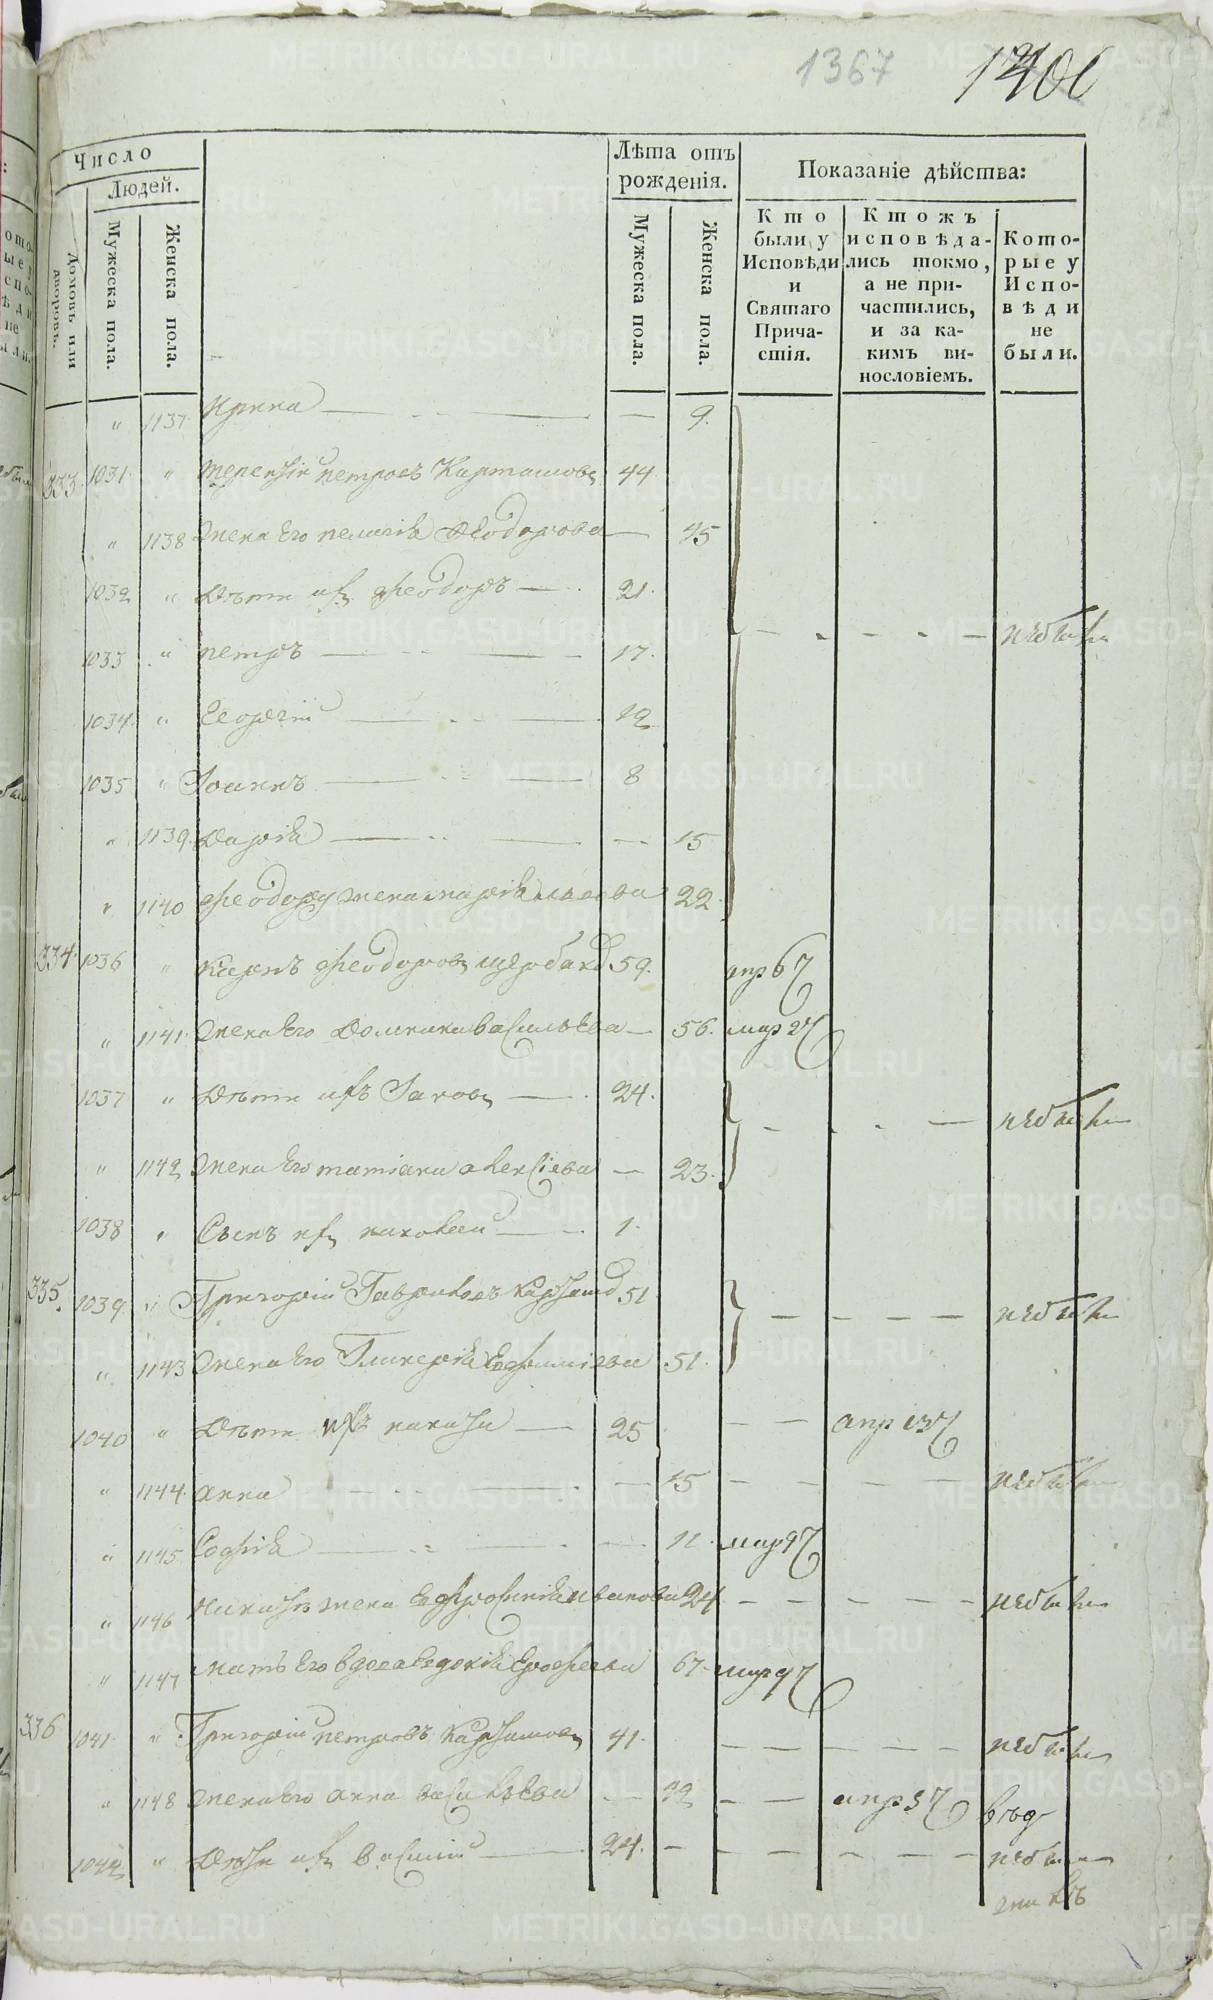 1367
1406
Число
Людей.
Домовъ или дворовъ.
Мужеска пола.
Женска пола.
Лѣта отъ рожденія.
Мужеска пола.
Женска пола.
Показаніе дѣйства:
Кто были у Исповѣди и Святаго Причастія.
Ктожъ исповѣдались токмо, а не причастились, и за какимъ винословіемъ.
Которые у Исповѣди не были.
" 1137 Ирина — — 9.
333 1031 " Терентій Петровъ Карташовъ 44
" 1138 Жена Его Пелагія Феодорова — 45
1032 " Дѣти ихъ Феодоръ — 21.
1033 " Петръ — 17. небыли
1034 " Георгій — 12
1035 " Іоаннъ — 8
" 1139 Дарія — — 15
" 1140 Феодору жена Марія 22
334 1036 " Карпъ Феодоровъ 59. апр 6
" 1141 Жена Его Домника Васильева — 56. мар 27
1037 " Дѣти ихъ Іаковъ — 24. небыли
" 1142 Жена Его Татіана Алексіева — 23.
1038 " Сынъ ихъ Николай — 1.
335. 1039 " Григорій Гавриловъ 51 небыли
" 1143 Жена Его Гликерія Евфиміева 51.
1040 " Дѣти ихъ — 25 — апр 13
" 1144 Анна — — 15 — небыли
" 1145 Софія — — 11. мар 9
" 1146 жена Евфросинія Иванова 24 — небыли
" 1147 Мать Его вдова Евдокія Ерофеева 67. мар 9
336 1041 " Григорій Петровъ 41. — небыли
" 1148 Жена Его Анна Васильева — — апр 3
1042 " Дѣти ихъ Василій — 24. — небыли